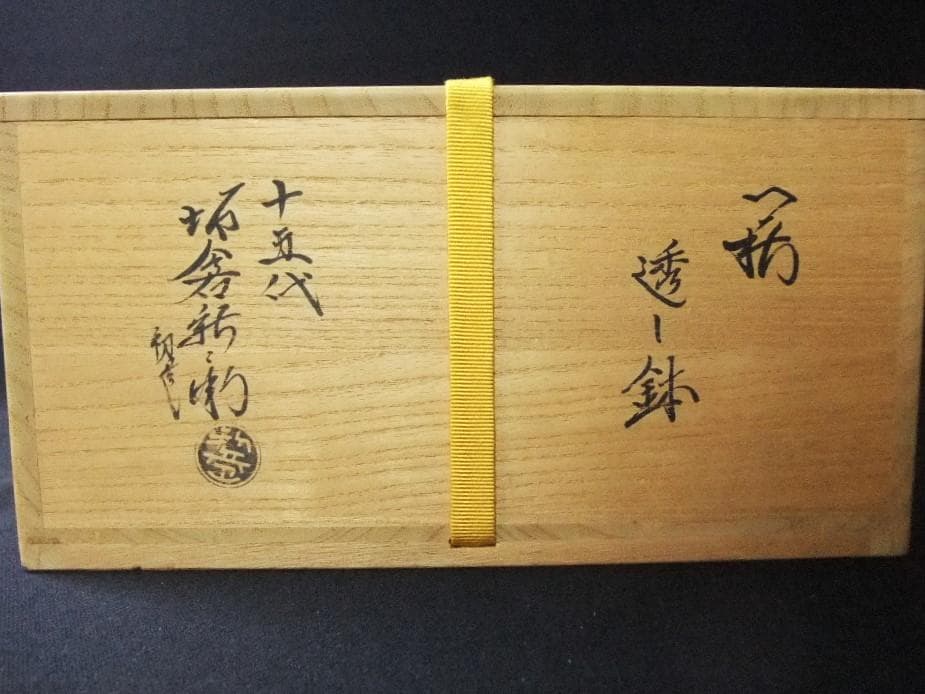 萩
透し鉢
十五代
坂倉新兵衛